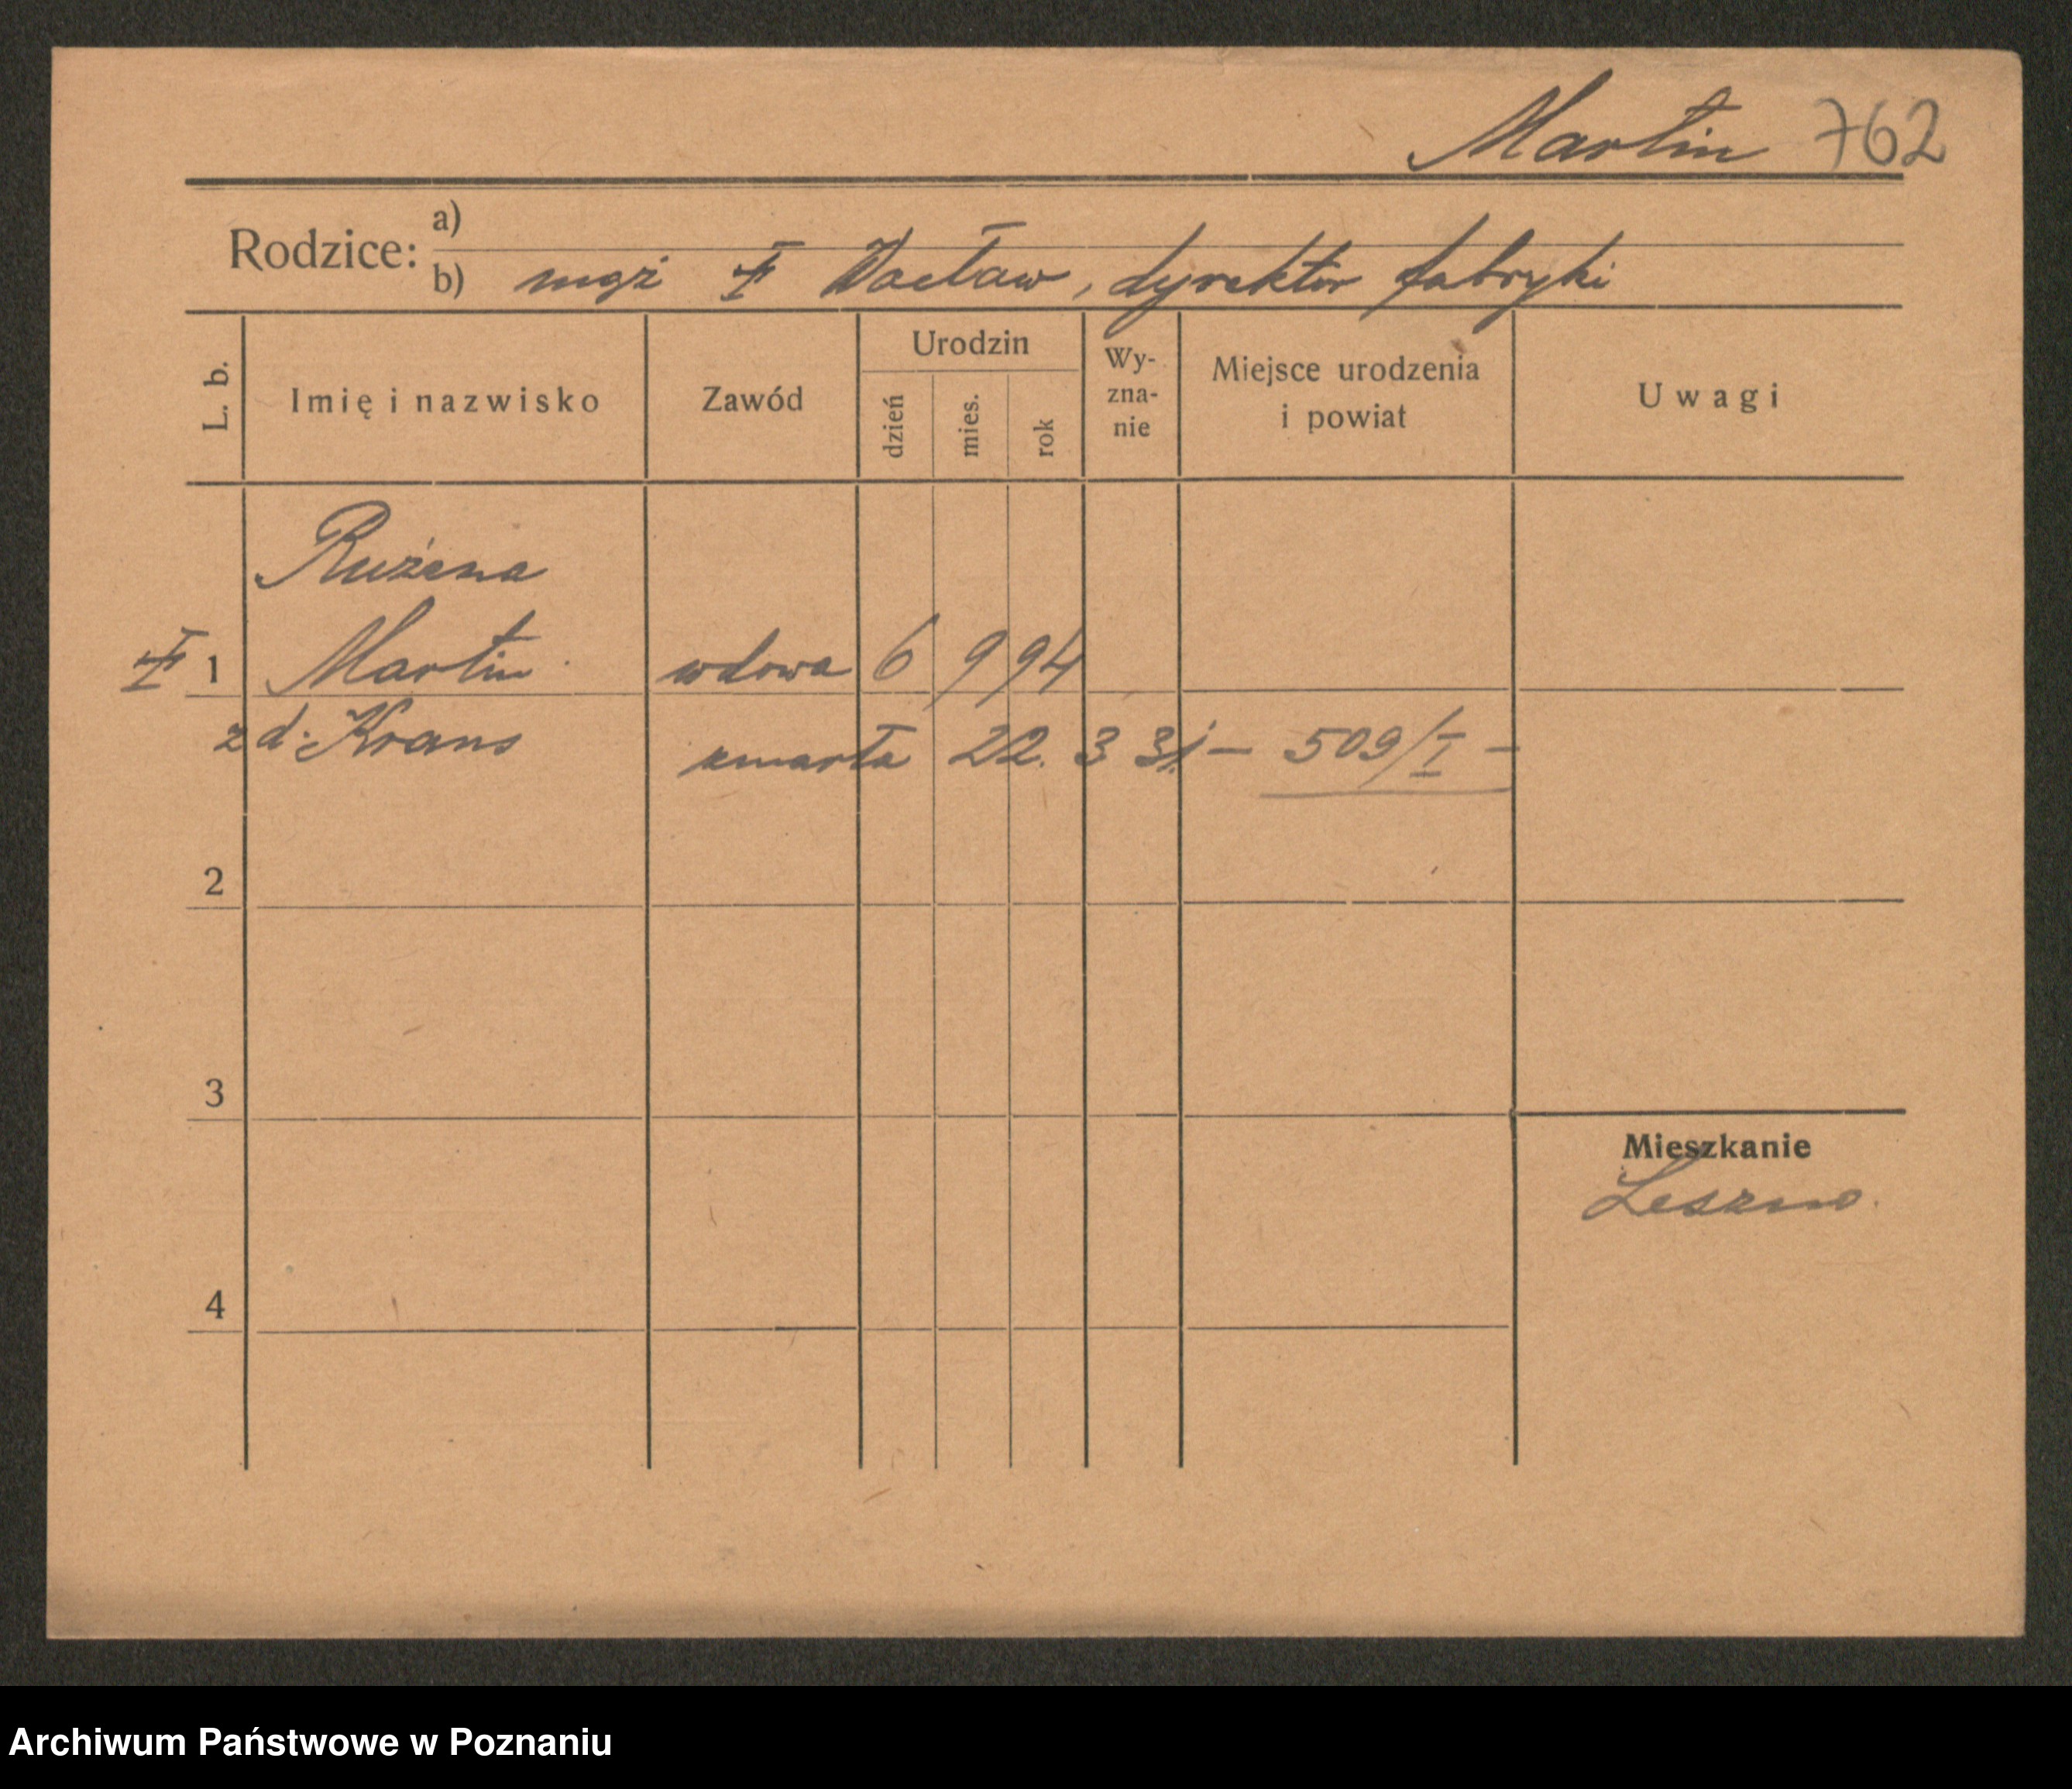 Martin 762
Rodzice:
a)
b) mąż † Wacław, dyrektor fabryki
L. b.
Imię i nazwisko
Zawód
Urodzin
dzień
mies.
rok
Wy-
zna-
nie
Miejsce urodzenia
i powiat
Uwagi
Rużena
† 1 Martin wdowa 6 9 94
z d. Krans
zmarła 22. 3 31. – 509/I –
2
3
4
Mieszkanie
Leszno.
Archiwum Państwowe w Poznaniu